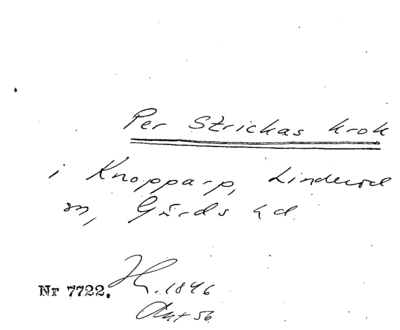 Per Strickas krok
i Knopparp, Linderöd
sn, Gärds hd.
Nr 7722. H. 1846